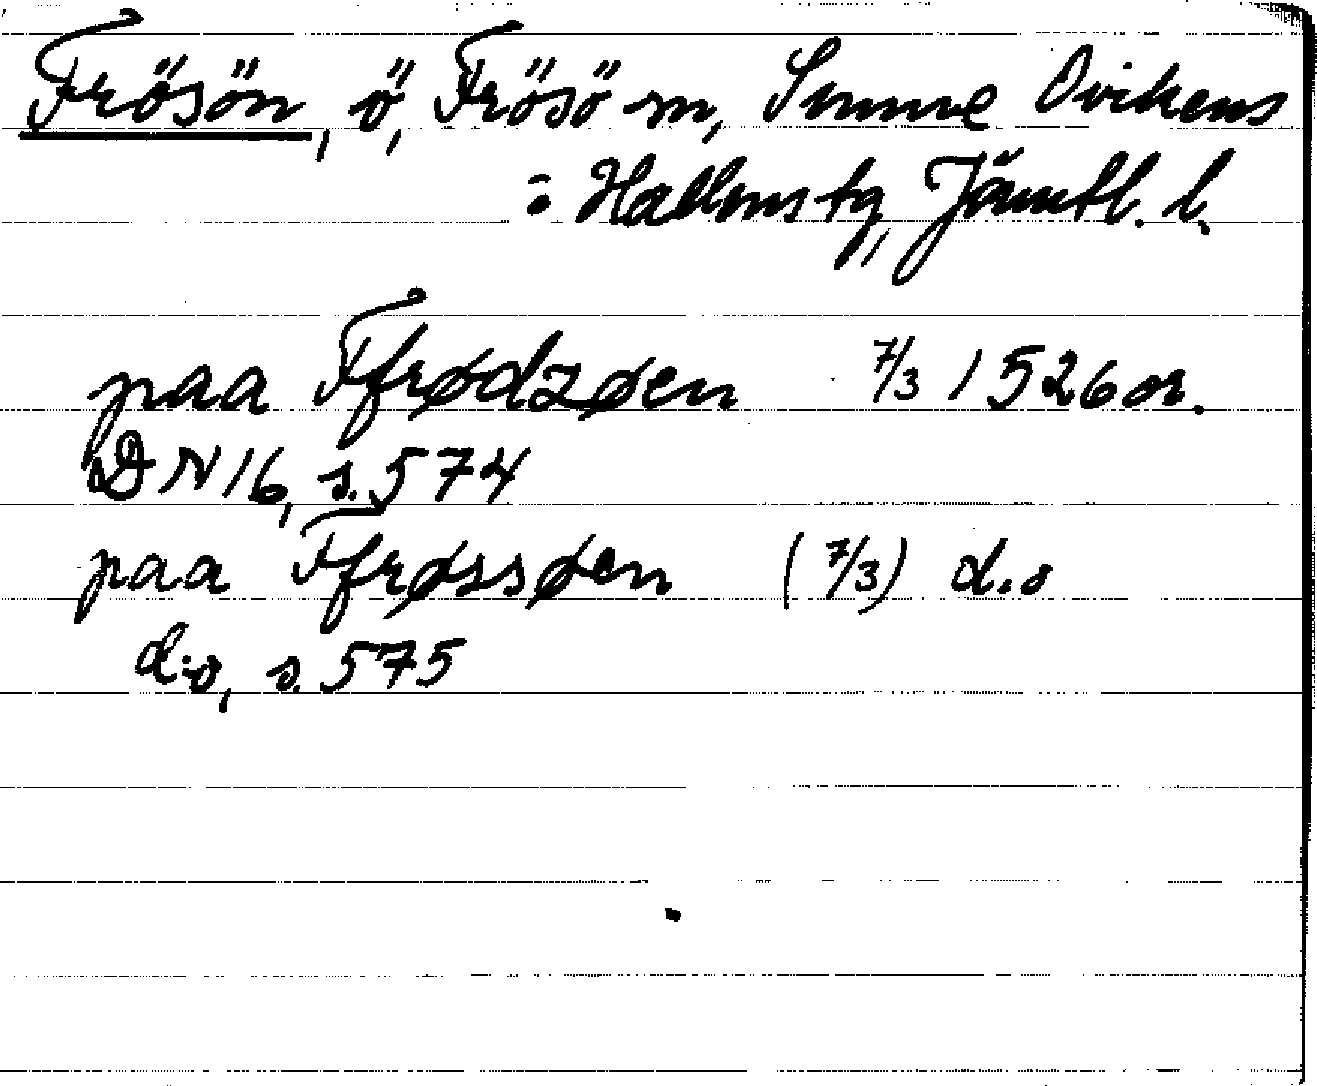 Frösön, ö, Frösö sn, Sunne Ovikens
o Hallens tg, Jämtl. l.
paa Ffrødzøen 7/3 1526 or.
DN 16, s. 574
paa Ffrøssøen (7/3) d:o
d:o, s. 575